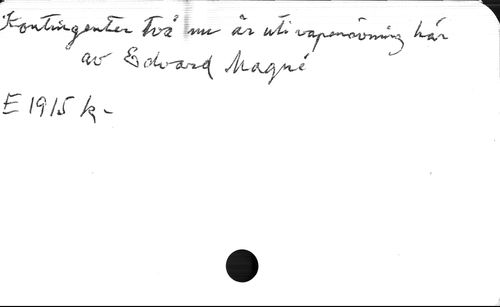 Kontingenter två nu är uti vapenövning här
av Edvard Magné
E 1915 k -